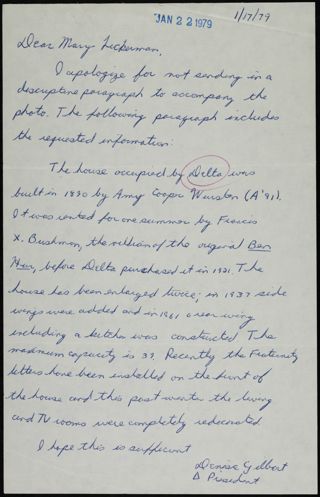 JAN 22 1979
1/17/79
Dear Mary Lickerman,
I apologize for not sending in a
descriptive paragraph to accompany the
photo. The following paragraph includes
the requested information:
The house occupied by Delta was
built in 1890 by Amy Cooper Winston (A'91).
It was rented for one summer by Francis
X. Bushman, the villian of the original Ben
Hur, before Delta purchased it in 1921. The
house has been enlarged twice; in 1937 side
wings were added and in 1961 a rear wing
including a kitchen was constructed The
maximum capacity is 37. Recently the Fraternity
letters have been installed on the front of
the house and this past winter the living
and TV rooms were completely redecorated
I hope this is sufficient
Denise Gilbert
Δ President